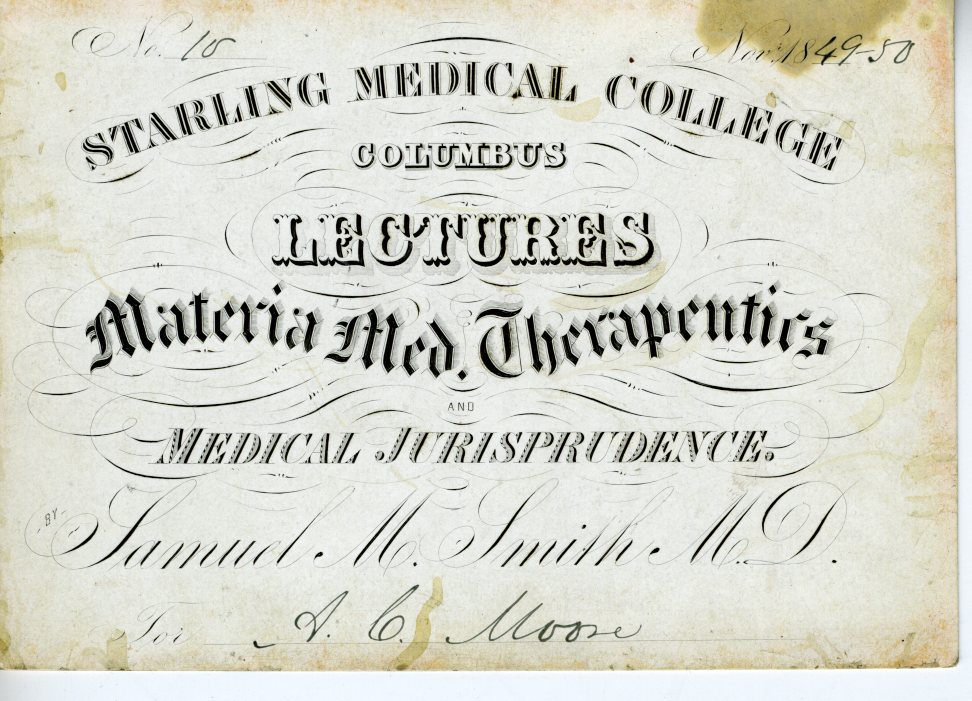 No. 10 Nov. 1849-50
STARLING MEDICAL COLLEGE
COLUMBUS
LECTURES
Materia Med. Therapeutics
AND
MEDICAL JURISPRUDENCE.
BY
Samuel M. Smith M.D.
For A. C. Moore